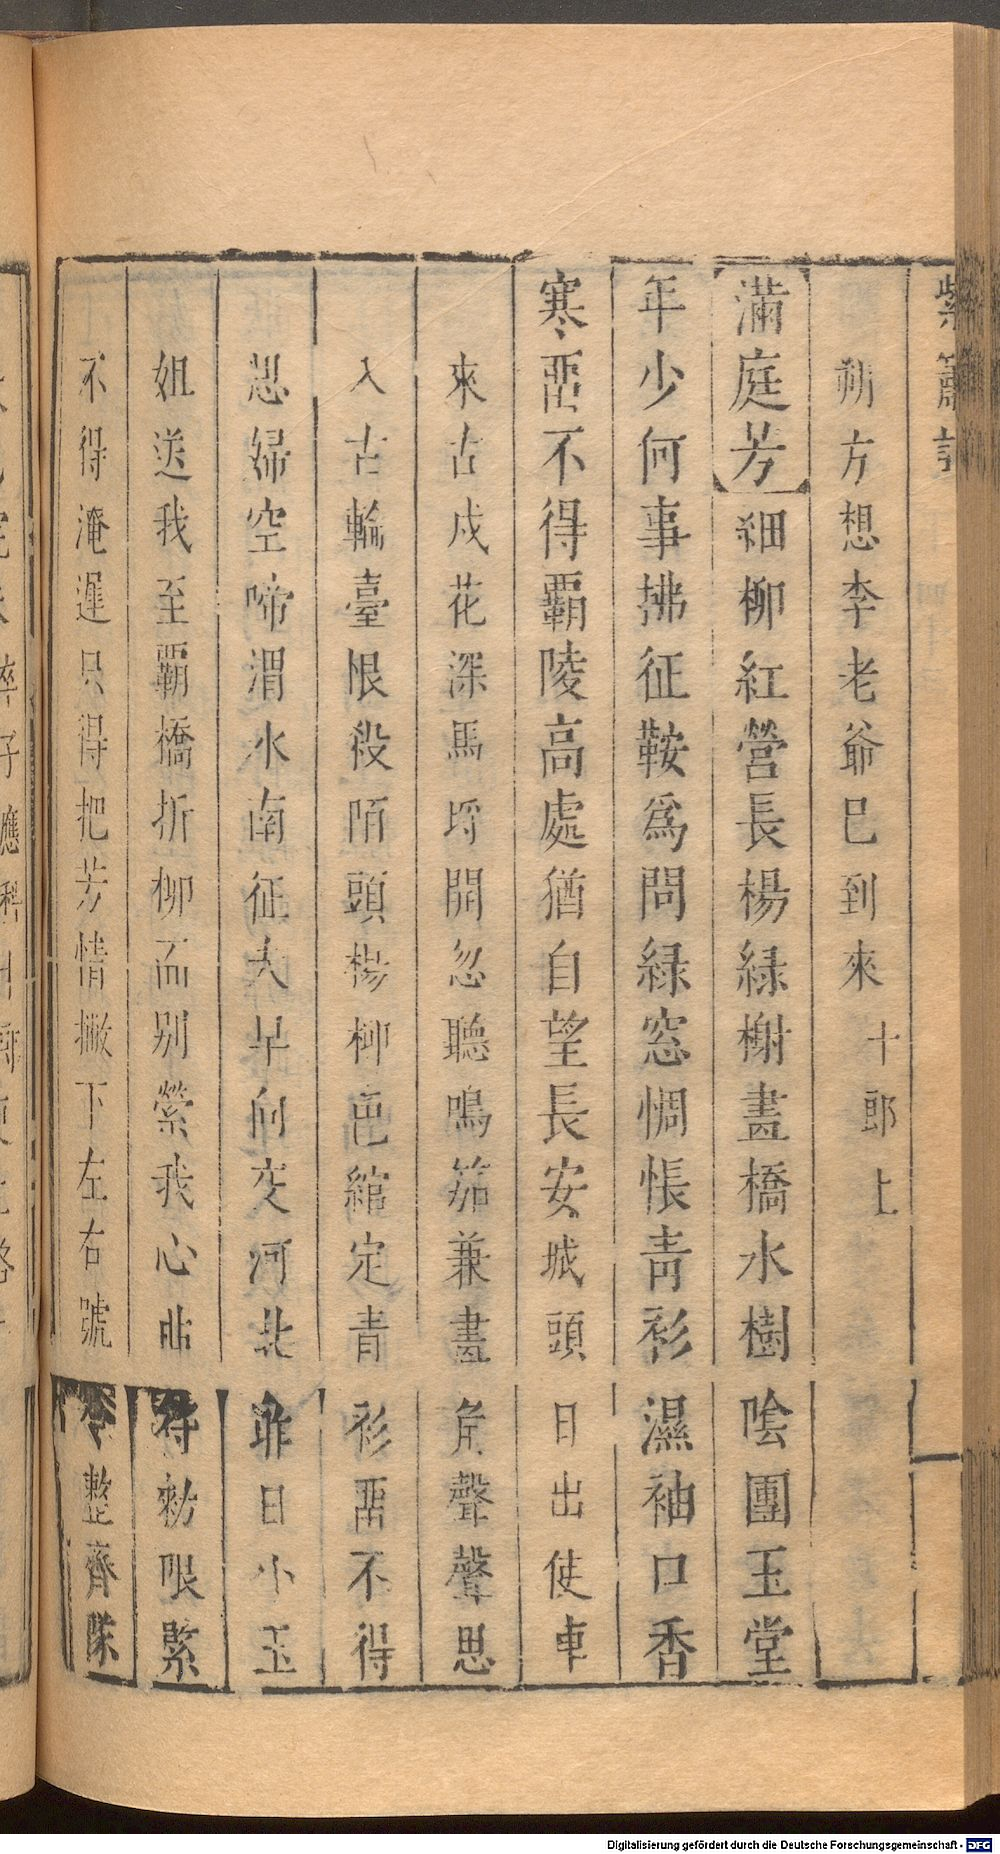 紫簫記
朔方想李老爺巳到來十郎上
滿庭芳細柳紅營長楊緑榭畫橋水樹陰團玉堂
年少何事拂征鞍爲問緑窓惆悵青衫濕袖口香
寒噩不得覇陵高處猶自望長安城頭日出使車
來古戍花深馬埒開忽聽鳴笳兼畫角聲聲思
入古輪臺恨殺陌頭楊柳色綰定青衫噩不得
思婦空啼渭水南征人早向交河北昨日小玉
姐送我至覇橋折柳而别縈我心曲
符勑限緊
不得淹遲只得把芳情撇下左右號令整齊隊
Digitalisierung gefördert durch die Deutsche Forschungsgemeinschaft - DFG